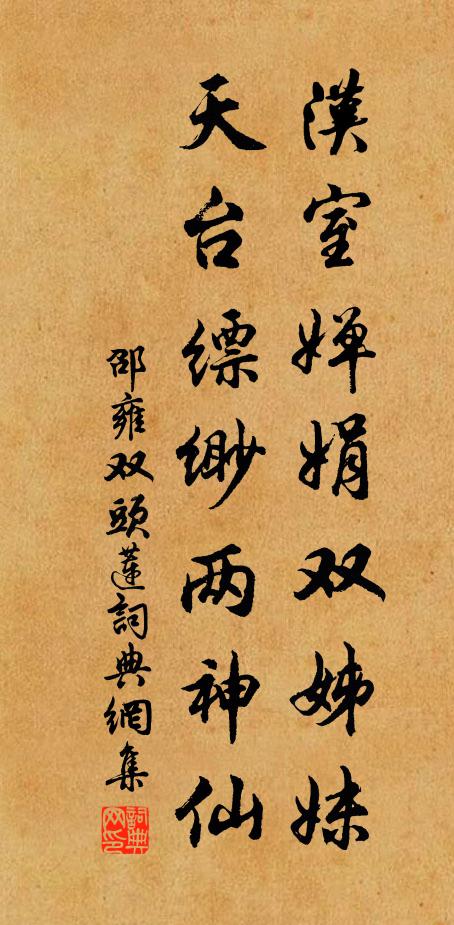 漢室婵娟双姊妹
天台缥缈两神仙
邵雍双頭蓮詞典網集
詞典网印